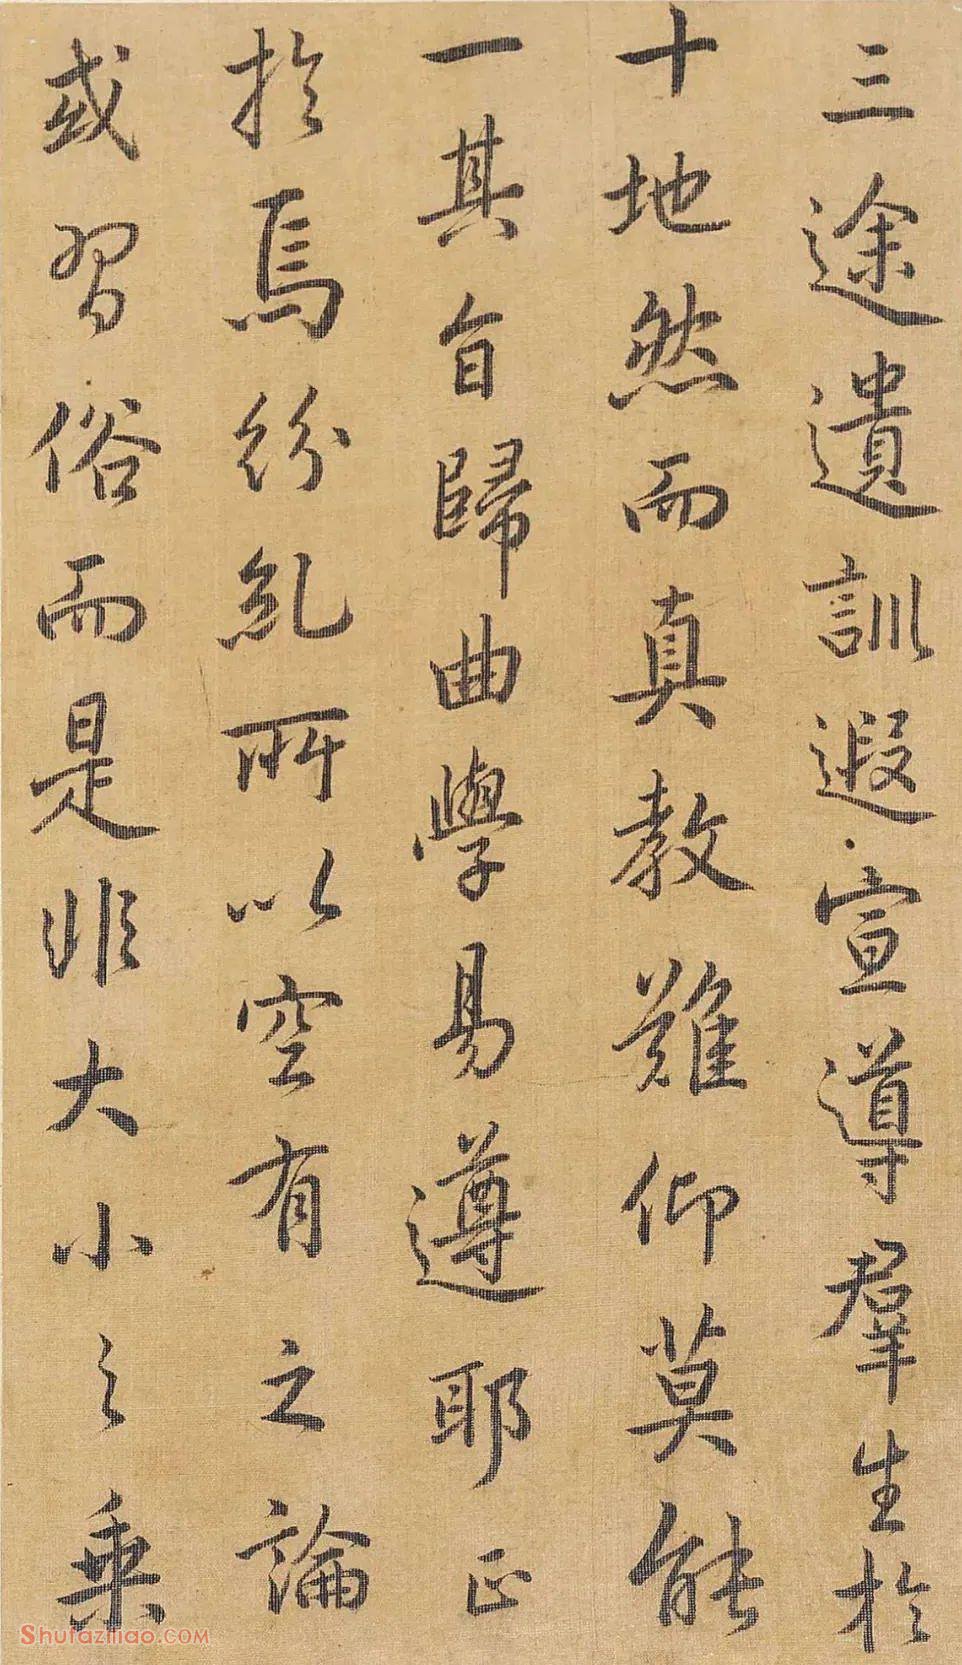 三途遺訓遐宣導羣生於
十地然而真教難仰莫能
一其旨歸曲學易遵耶正
於焉紛糺所以空有之論
或習俗而是非大小之乘
Shufaziliao.COM